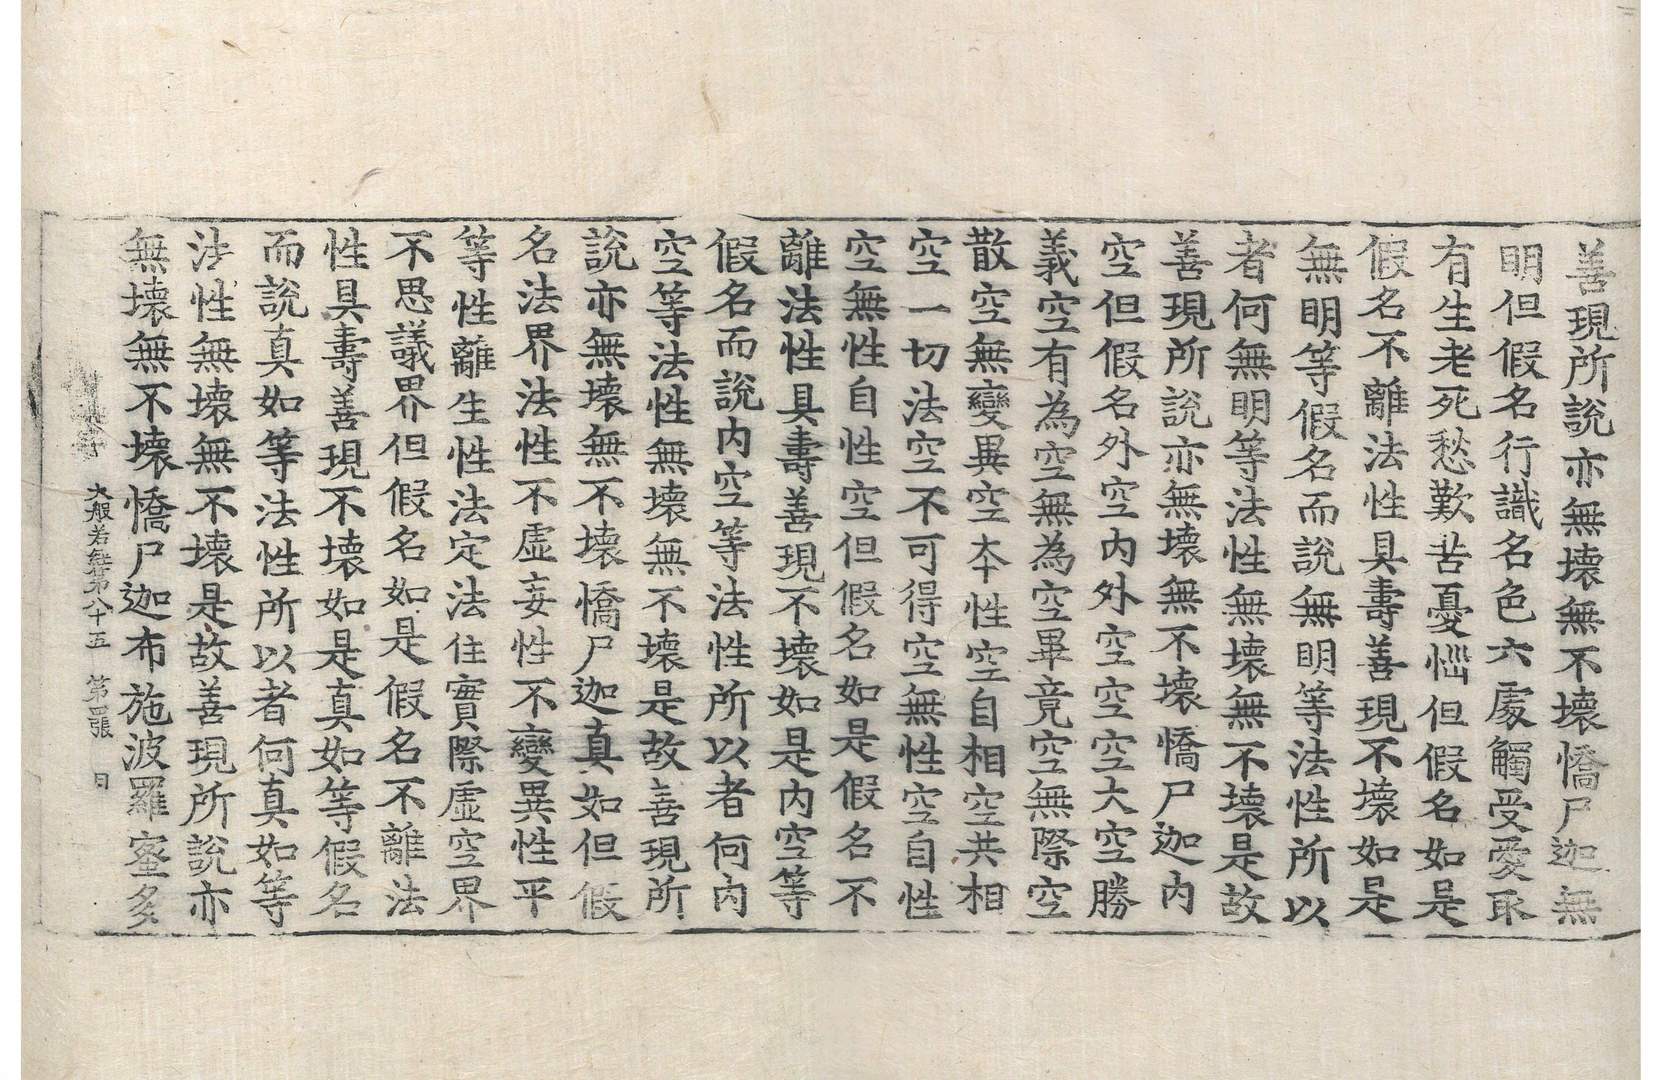 善現所說亦無壞無不壞憍尸迦無
明但假名行識名色六處觸受愛取
有生老死愁歎苦憂惱但假名如是
假名不離法性具壽善現不壞如是
無明等假名而說無明等法性所以
者何無明等法性無壞無不壞是故
善現所說亦無壞無不壞憍尸迦內
空但假名外空內外空空空大空勝
義空有為空無為空畢竟空無際空
散空無變異空本性空自相空共相
空一切法空不可得空無性空自性
空無性自性空但假名如是假名不
離法性具壽善現不壞如是內空等
假名而說內空等法性所以者何內
空等法性無壞無不壞是故善現所
說亦無壞無不壞憍尸迦真如但假
名法界法性不虛妄性不變異性平
等性離生性法定法住實際虛空界
不思議界但假名如是假名不離法
性具壽善現不壞如是真如等假名
而說真如等法性所以者何真如等
法性無壞無不壞是故善現所說亦
無壞無不壞憍尸迦布施波羅蜜多
大般若經第八十五 第張